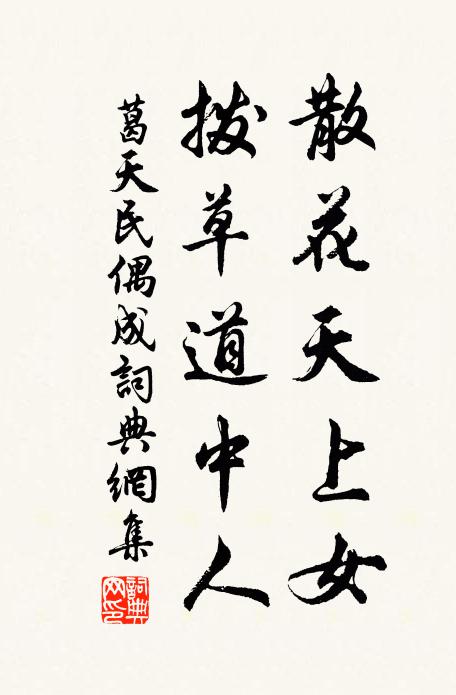 散花天上女
拨草道中人
葛天民偶成詞典網集
詞典网印